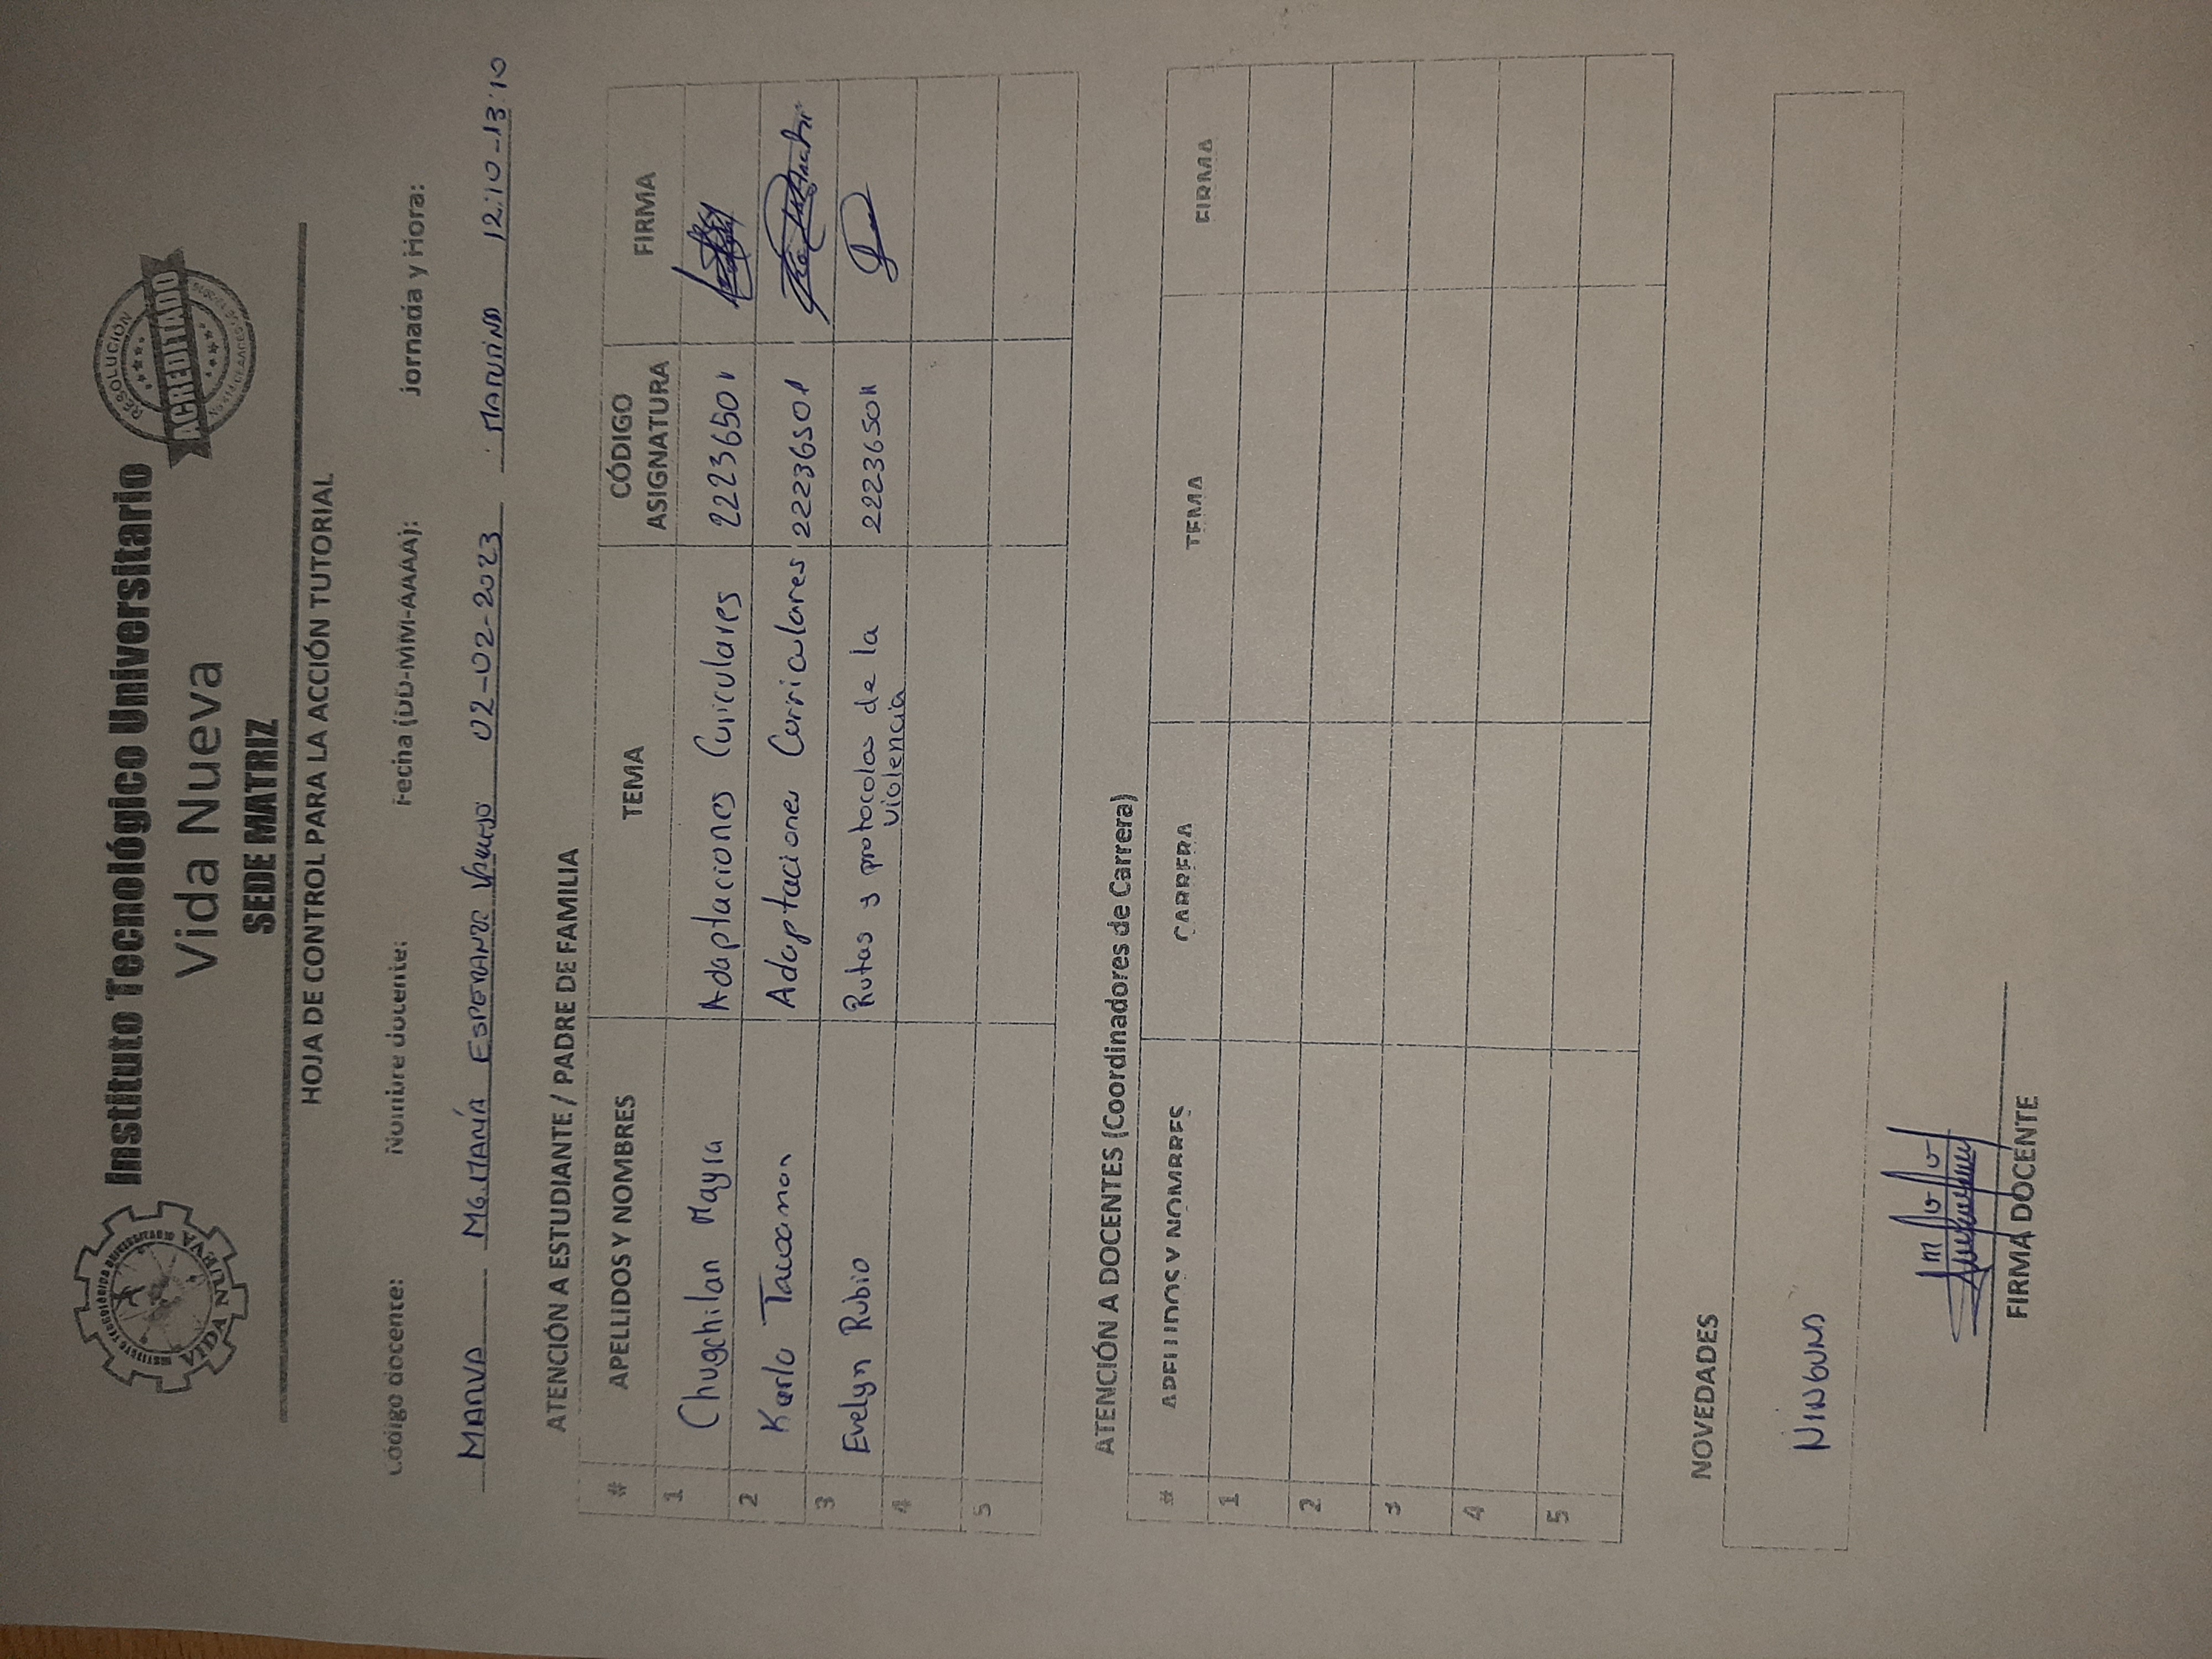 INSTITUTO TECNOLÓGICO UNIVERSITARIO
VIDA NUEVA
Instituto Tecnológico Universitario
Vida Nueva
SEDE MATRIZ
RESOLUCIÓN
ACREDITADO
HOJA DE CONTROL PARA LA ACCIÓN TUTORIAL
Código docente: Nombre docente: Fecha (DD-MM-AAAA): Jornada y Hora:
MARVA MG. MARÍA ESPERANZA VALLEJO 02-02-2023 MATUTINA 12:10-13:10
ATENCIÓN A ESTUDIANTE / PADRE DE FAMILIA
# APELLIDOS Y NOMBRES TEMA CÓDIGO ASIGNATURA FIRMA
1 Chugchilan Mayra Adaptaciones Curiculares
2 Karla Adaptaciones Curriculares
3 Evelyn Rubio Rutas y protocolos de la
violencia
4
5
ATENCIÓN A DOCENTES (Coordinadores de Carrera)
# APELLIDOS Y NOMBRES CARRERA TEMA FIRMA
1
2
3
4
5
NOVEDADES
NINGUNA
FIRMA DOCENTE